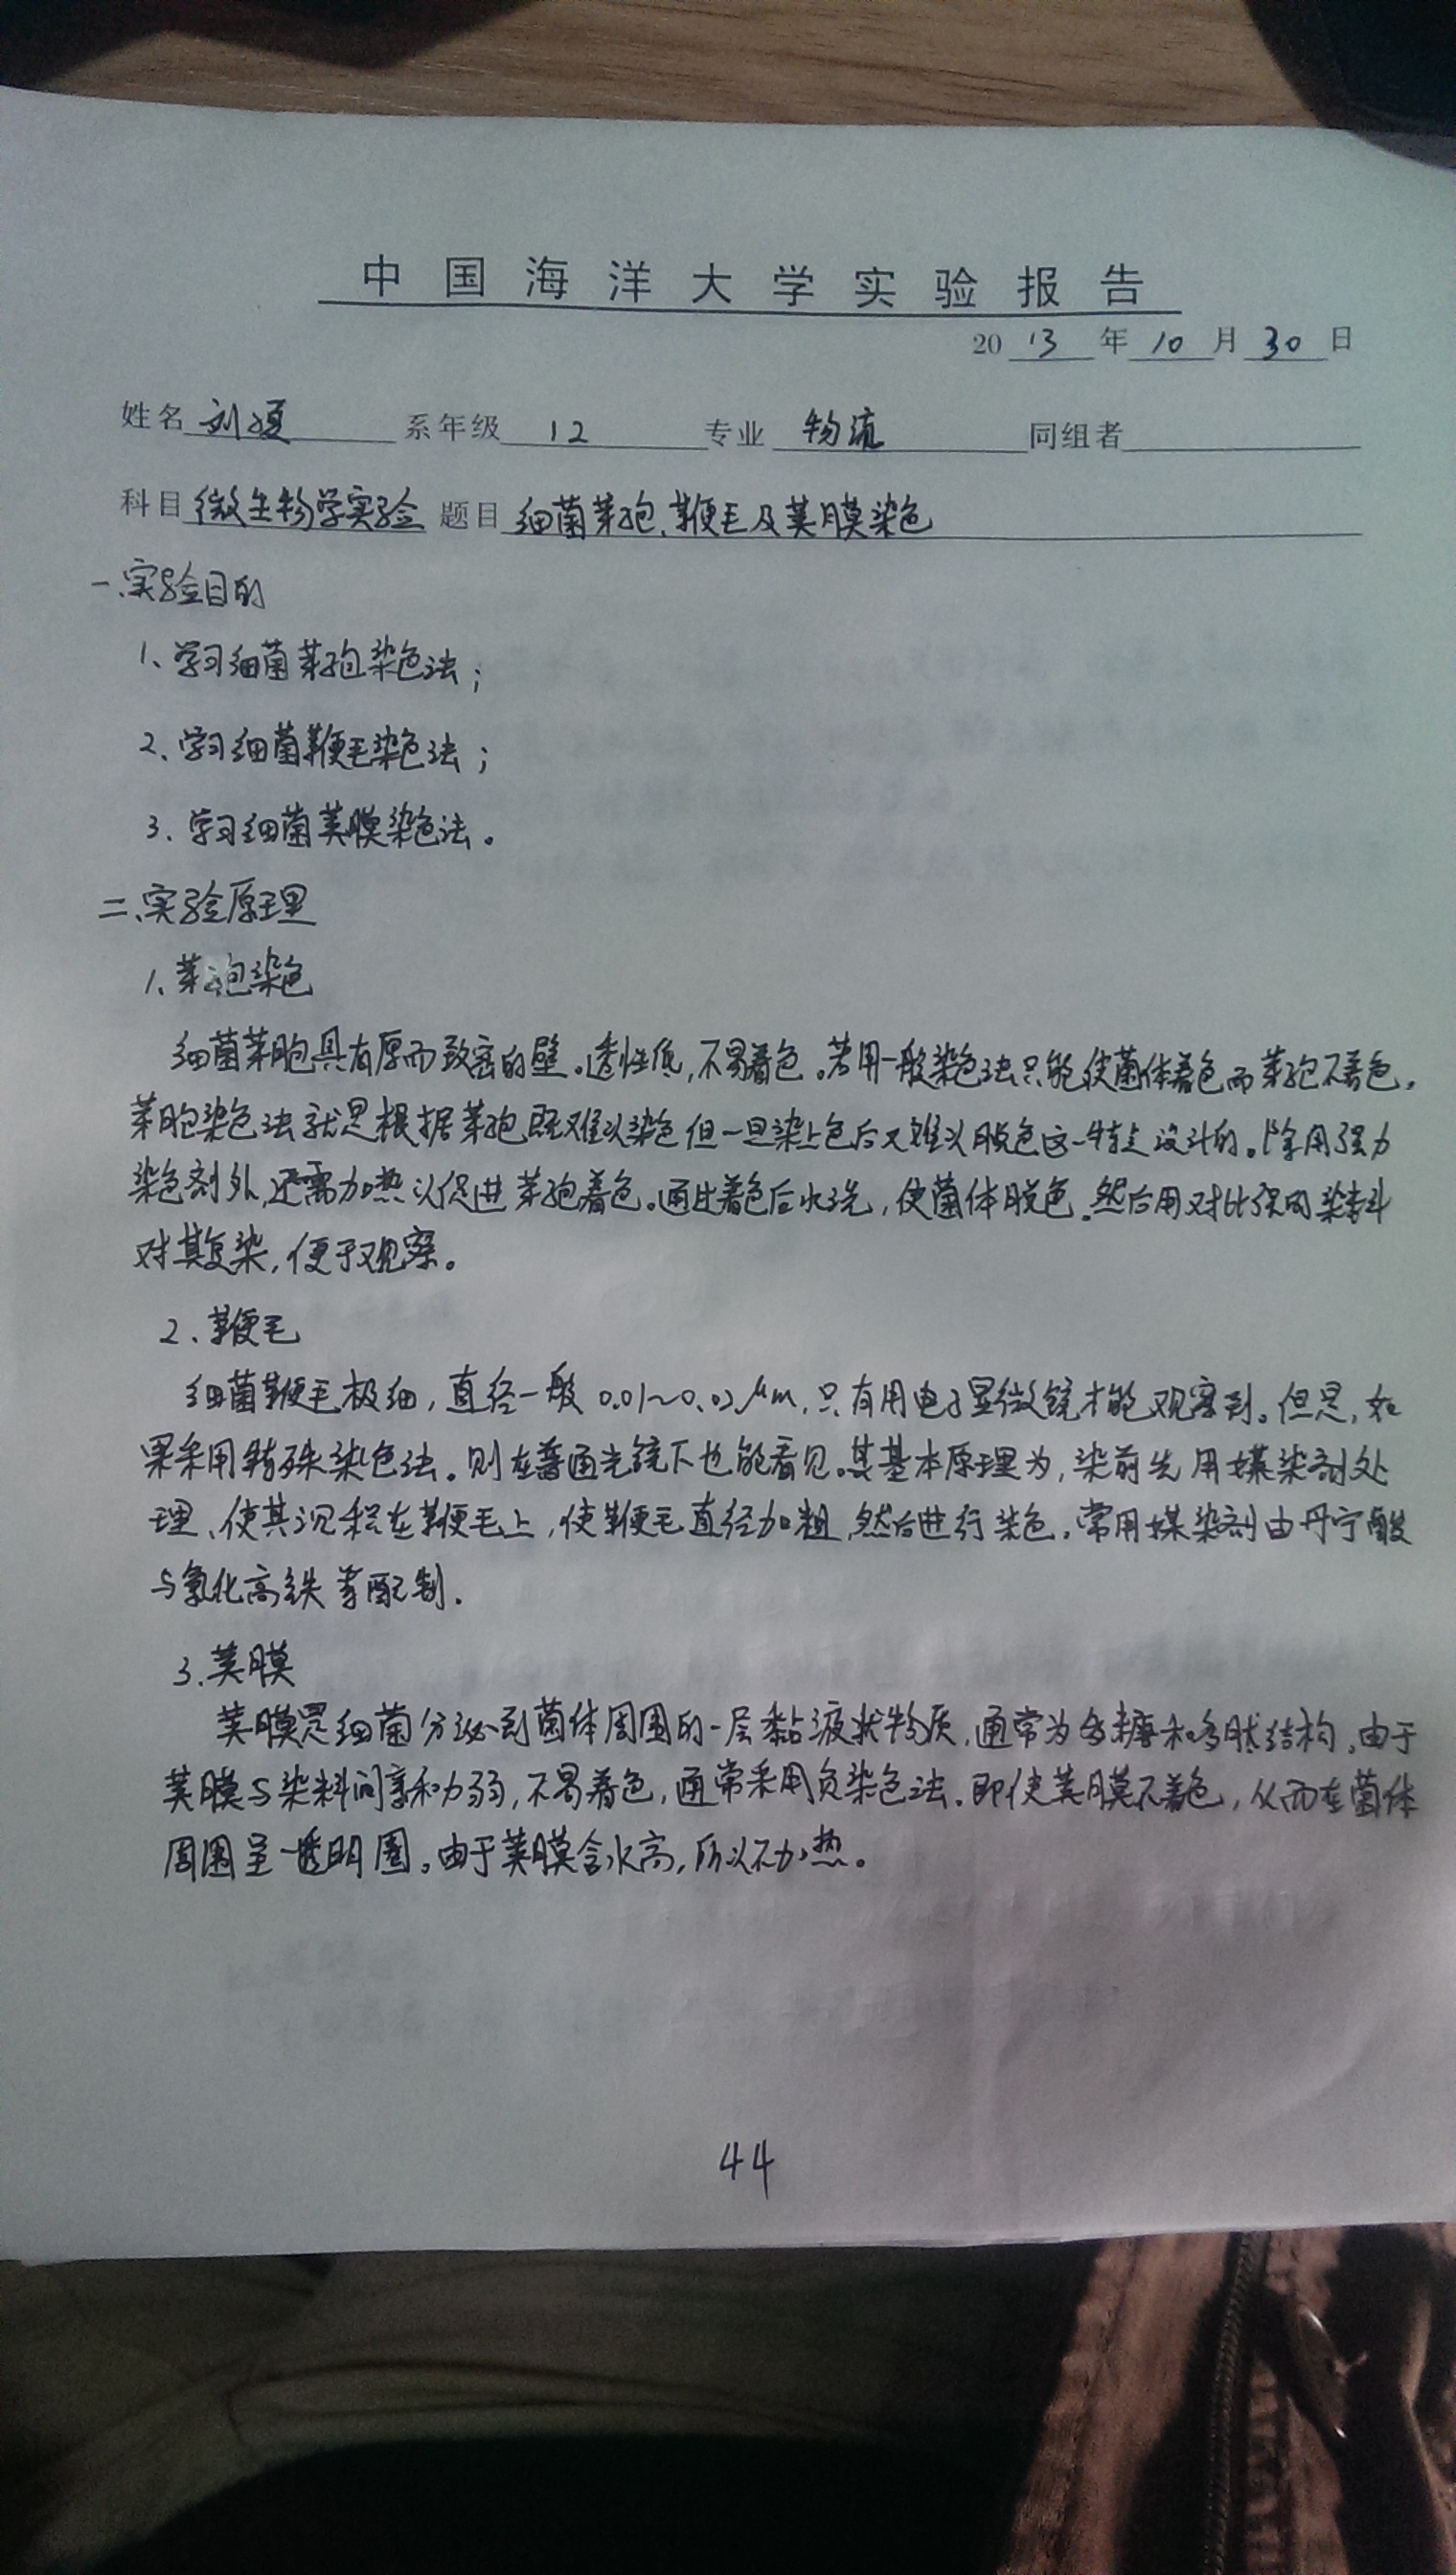 中国海洋大学实验报告
2013年10月30日
姓名 刘 系年级 12 专业 物流 同组者
科目 微生物学实验 题目 细菌芽孢、鞭毛及荚膜染色
一、实验目的
1、学习细菌芽孢染色法；
2、学习细菌鞭毛染色法；
3、学习细菌荚膜染色法。
二、实验原理
1、芽孢染色
细菌芽胞具有厚而致密的壁。透性低,不易着色。若用一般染色法只能使菌体着色而芽孢不着色。
芽胞染色法就是根据芽孢既难以染色但一旦染上色后又难以脱色这一特点设计的。除用强力
染色剂外,还需加热以促进芽孢着色。通过着色后水洗,使菌体脱色。然后用对比强的染料
对其复染,便于观察。
2、鞭毛
细菌鞭毛极细,直径一般0.01~0.02μm,只有用电子显微镜才能观察到。但是,如
果采用特殊染色法。则在普通光镜下也能看见。其基本原理为,染前先用媒染剂处
理、使其沉积在鞭毛上,使鞭毛直径加粗,然后进行染色。常用媒染剂由丹宁酸
与氯化高铁等配制.
3.荚膜
荚膜是细菌分泌到菌体周围的一层黏液状物质,通常为多糖和多肽结构。由于
荚膜与染料间亲和力弱,不易着色,通常采用负染色法.即使荚膜不着色,从而在菌体
周围呈一透明圈。由于荚膜含水高,所以不加热。
44